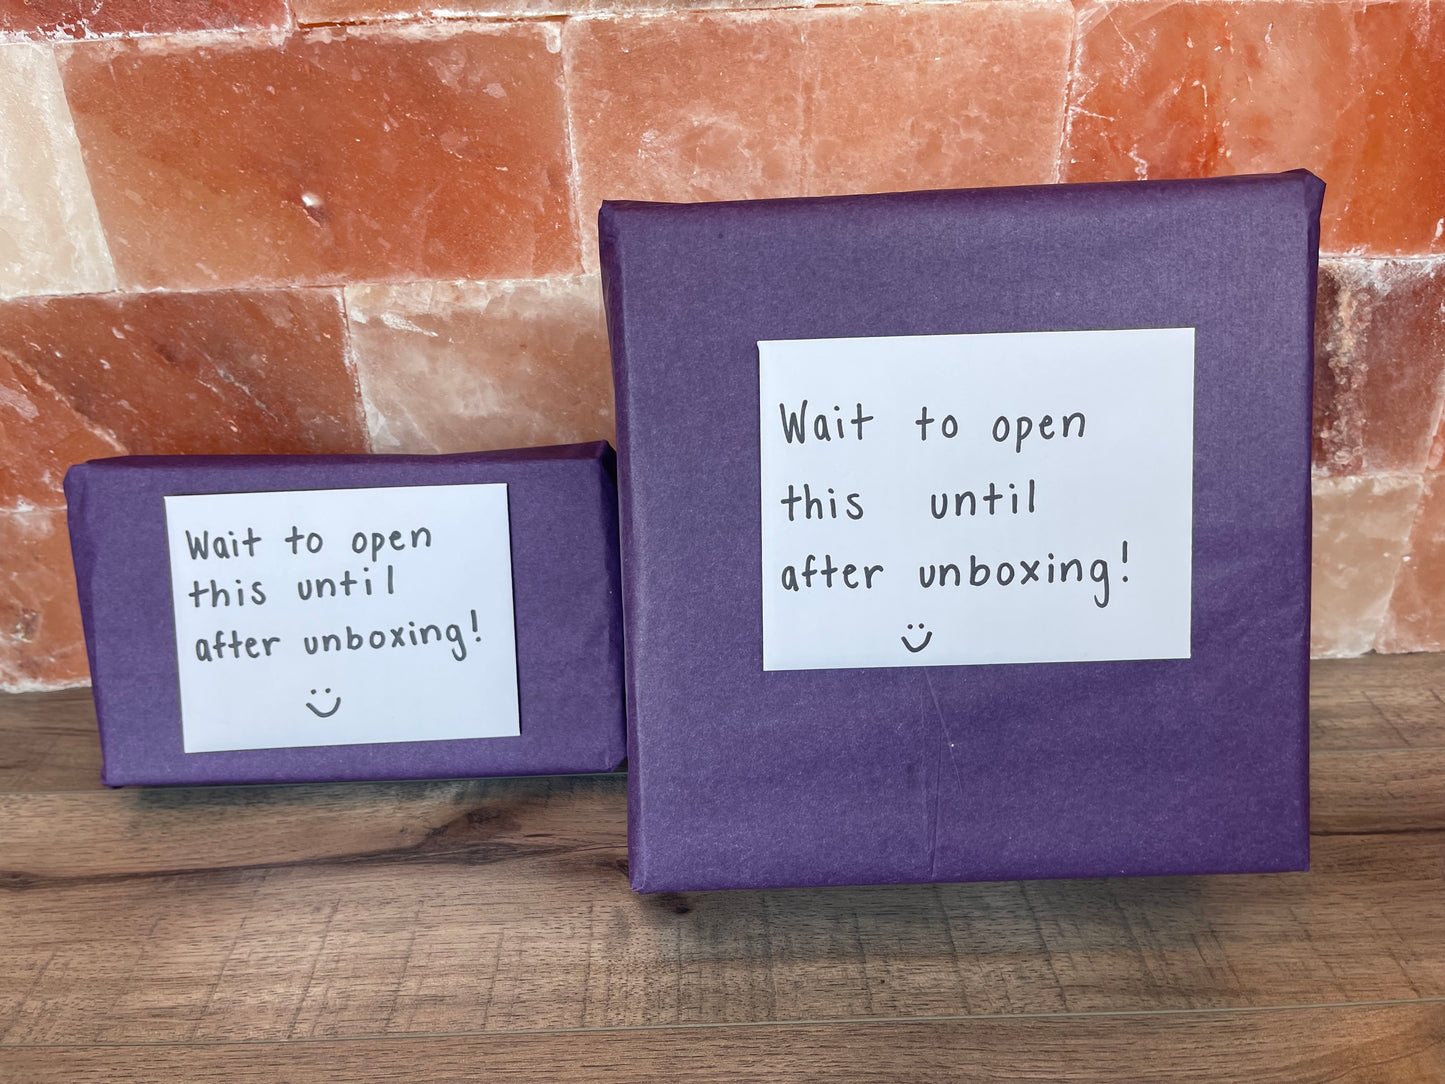 Wait to open
this until
after unboxing!
Wait to open
this until
after unboxing!